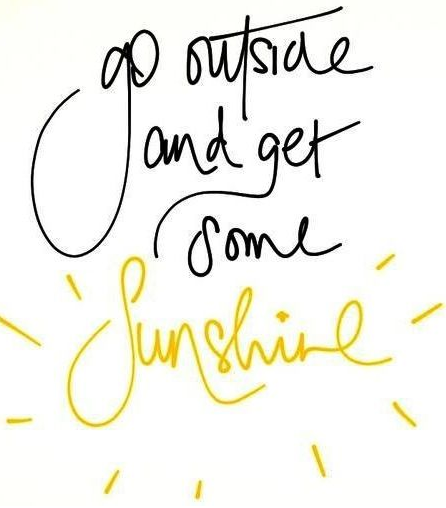 go outside
and get
some
Sunshine